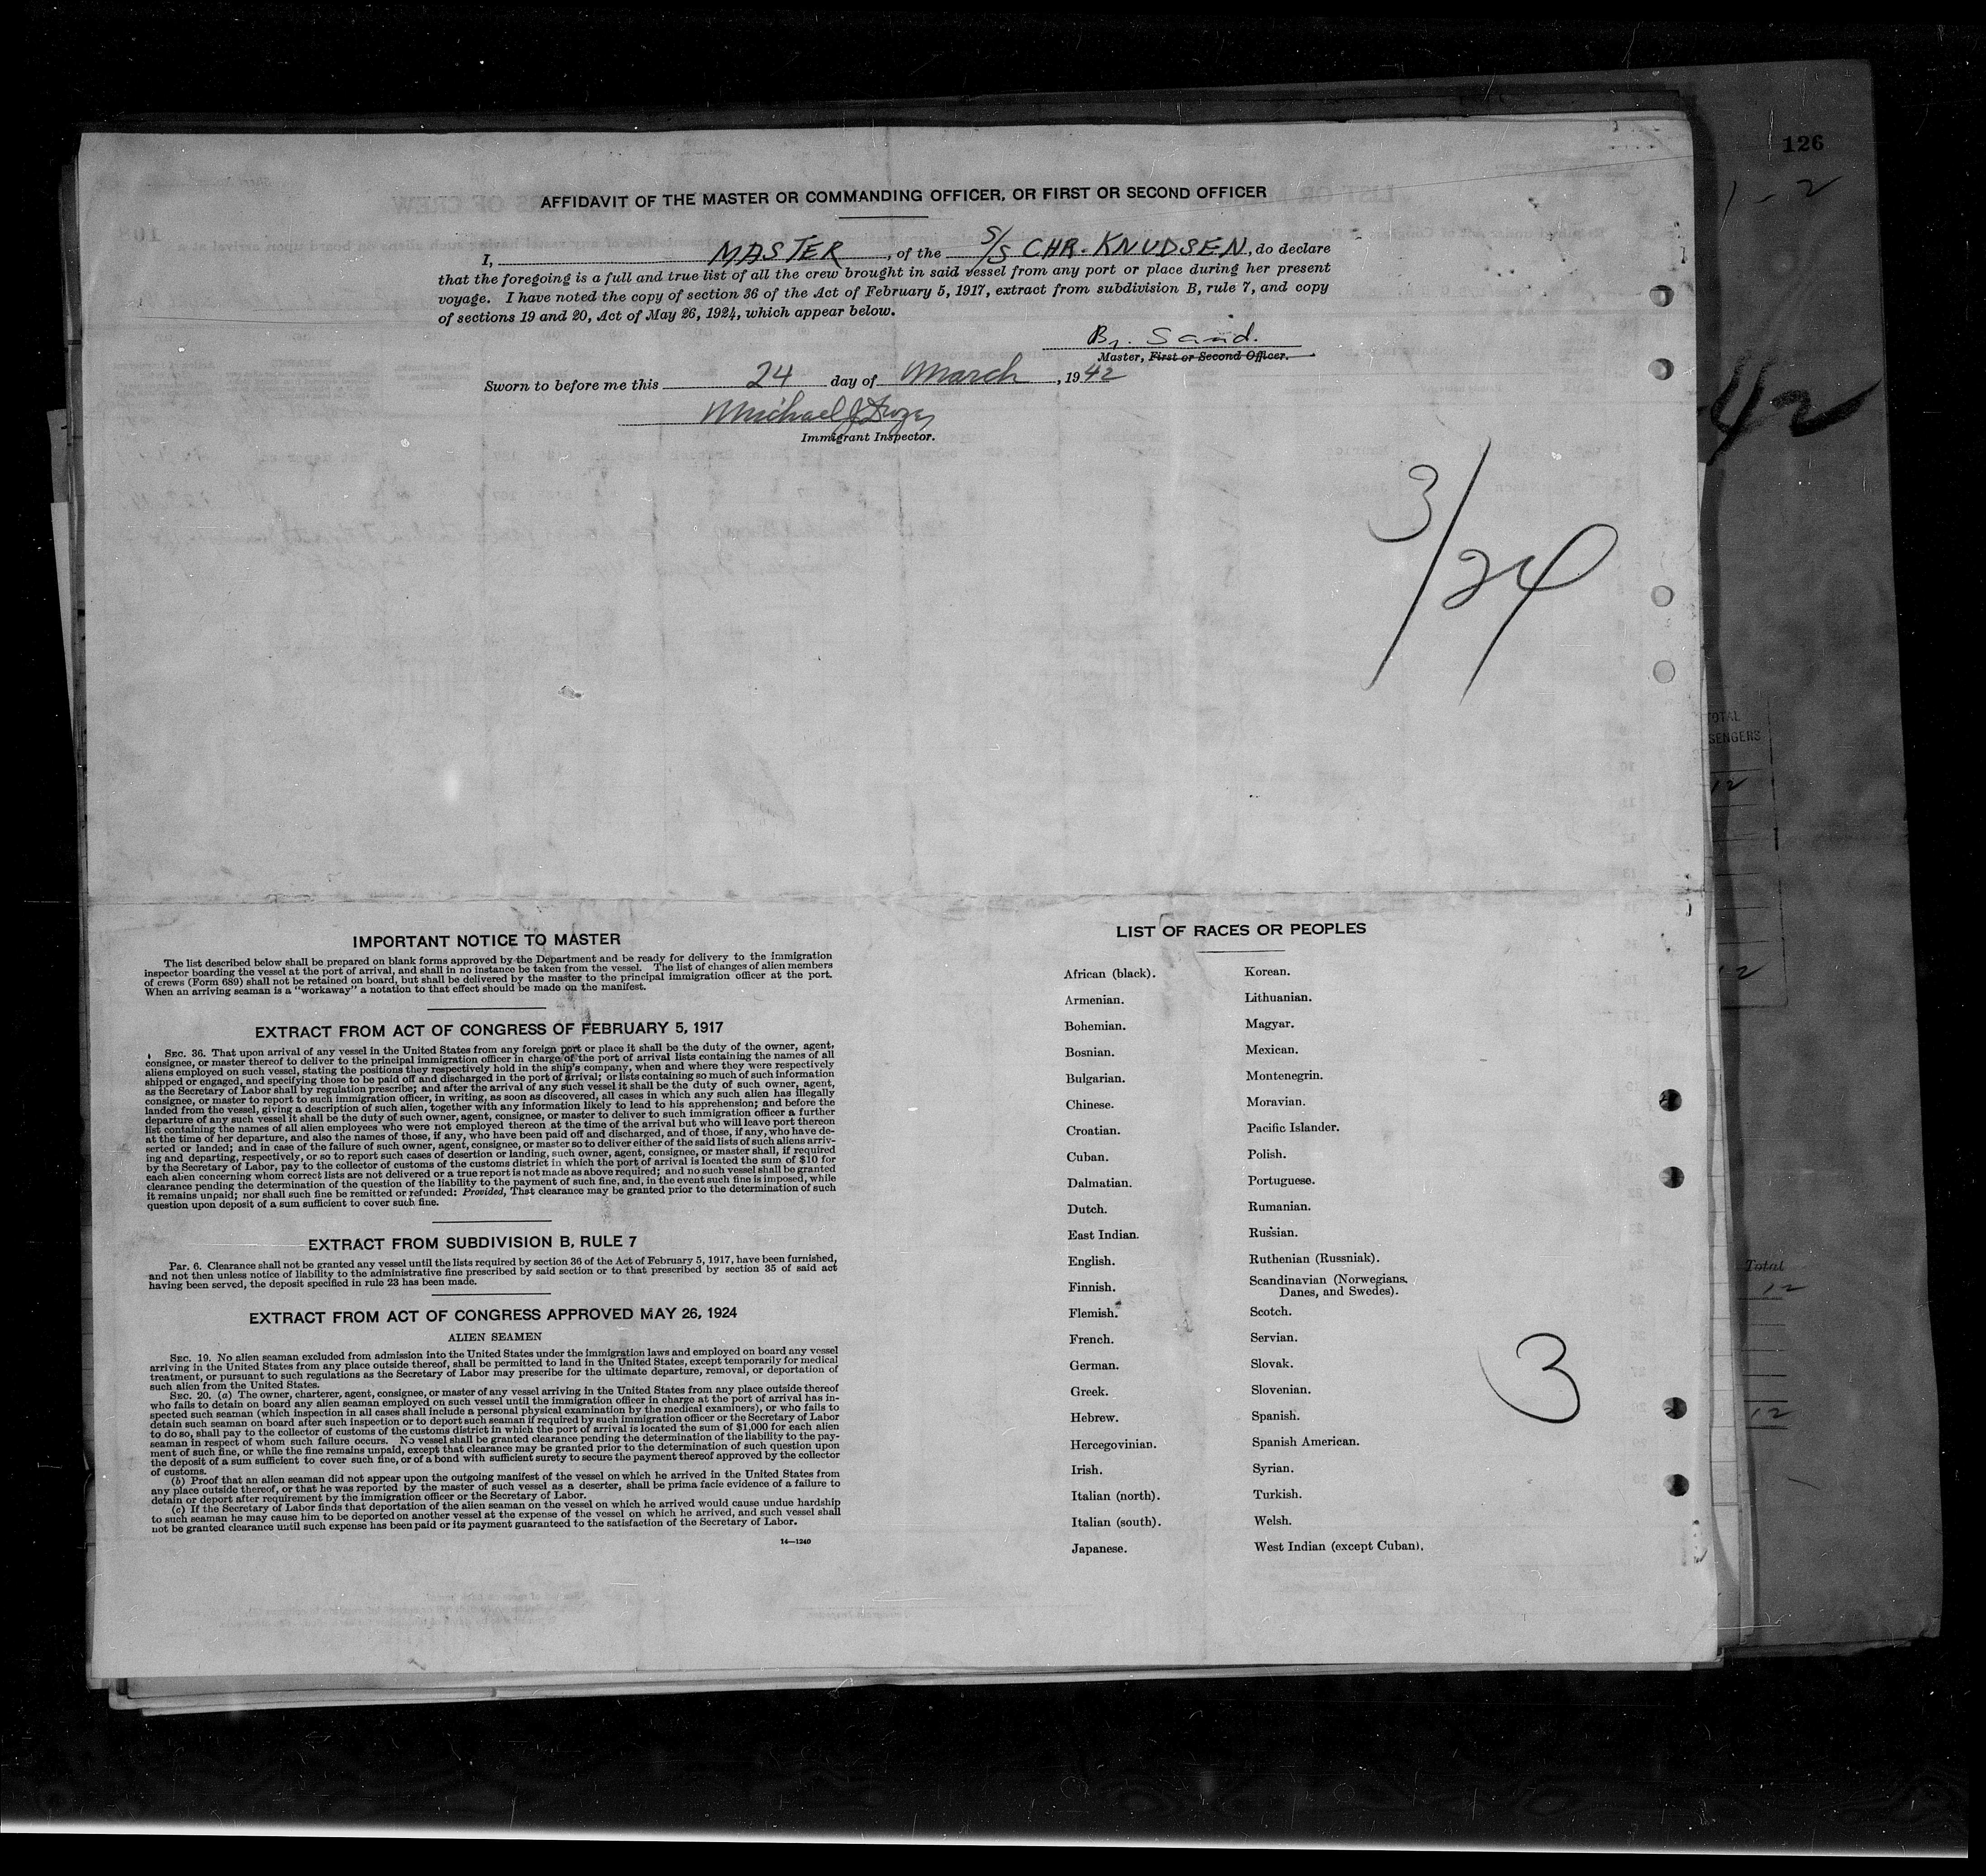 126
1 - 2
AFFIDAVIT OF THE MASTER OR COMMANDING OFFICER, OR FIRST OR SECOND OFFICER
I, MASTER, of the S/S CHR. KNUDSEN, do declare
that the foregoing is a full and true list of all the crew brought in said vessel from any port or place during her present
voyage. I have noted the copy of section 36 of the Act of February 5, 1917, extract from subdivision B, rule 7, and copy
of sections 19 and 20, Act of May 26, 1924, which appear below.
Br. Sand.
Master, First or Second Officer.
Sworn to before me this 24 day of March, 1942
Michael J
Immigrant Inspector.
42
3/24
TOTAL
SENGERS
12
12
IMPORTANT NOTICE TO MASTER
The list described below shall be prepared on blank forms approved by the Department and be ready for delivery to the immigration
inspector boarding the vessel at the port of arrival, and shall in no instance be taken from the vessel. The list of changes of alien members
of crews (Form 689) shall not be retained on board, but shall be delivered by the master to the principal immigration officer at the port.
When an arriving seaman is a "workaway" a notation to that effect should be made on the manifest.
EXTRACT FROM ACT OF CONGRESS OF FEBRUARY 5, 1917
SEC. 36. That upon arrival of any vessel in the United States from any foreign port or place it shall be the duty of the owner, agent,
consignee, or master thereof to deliver to the principal immigration officer in charge of the port of arrival lists containing the names of all
aliens employed on such vessel, stating the positions they respectively hold in the ship's company, when and where they were respectively
shipped or engaged, and specifying those to be paid off and discharged in the port of arrival; or lists containing so much of such information
as the Secretary of Labor shall by regulation prescribe; and after the arrival of any such vessel it shall be the duty of such owner, agent,
consignee, or master to report to such immigration officer, in writing, as soon as discovered, all cases in which any such alien has illegally
landed from the vessel, giving a description of such alien, together with any information likely to lead to his apprehension; and before the
departure of any such vessel it shall be the duty of such owner, agent, consignee, or master to deliver to such immigration officer a further
list containing the names of all alien employees who were not employed thereon at the time of the arrival but who will leave port thereon
at the time of her departure, and also the names of those, if any, who have been paid off and discharged, and of those, if any, who have de-
serted or landed; and in case of the failure of such owner, agent, consignee, or master so to deliver either of the said lists of such aliens arriv-
ing and departing, respectively, or so to report such cases of desertion or landing, such owner, agent, consignee, or master shall, if required
by the Secretary of Labor, pay to the collector of customs of the customs district in which the port of arrival is located the sum of $10 for
each alien concerning whom correct lists are not delivered or a true report is not made as above required; and no such vessel shall be granted
clearance pending the determination of the question of the liability to the payment of such fine, and, in the event such fine is imposed, while
it remains unpaid; nor shall such fine be remitted or refunded: Provided, That clearance may be granted prior to the determination of such
question upon deposit of a sum sufficient to cover such fine.
EXTRACT FROM SUBDIVISION B, RULE 7
Par. 6. Clearance shall not be granted any vessel until the lists required by section 36 of the Act of February 5, 1917, have been furnished,
and not then unless notice of liability to the administrative fine prescribed by said section or to that prescribed by section 35 of said act
having been served, the deposit specified in rule 23 has been made.
EXTRACT FROM ACT OF CONGRESS APPROVED MAY 26, 1924
ALIEN SEAMEN
SEC. 19. No alien seaman excluded from admission into the United States under the immigration laws and employed on board any vessel
arriving in the United States from any place outside thereof, shall be permitted to land in the United States, except temporarily for medical
treatment, or pursuant to such regulations as the Secretary of Labor may prescribe for the ultimate departure, removal, or deportation of
such alien from the United States.
SEC. 20. (a) The owner, charterer, agent, consignee, or master of any vessel arriving in the United States from any place outside thereof
who fails to detain on board any alien seaman employed on such vessel until the immigration officer in charge at the port of arrival has in-
spected such seaman (which inspection in all cases shall include a personal physical examination by the medical examiners), or who fails to
detain such seaman on board after such inspection or to deport such seaman if required by such immigration officer or the Secretary of Labor
to do so, shall pay to the collector of customs of the customs district in which the port of arrival is located the sum of $1,000 for each alien
seaman in respect of whom such failure occurs. No vessel shall be granted clearance pending the determination of the liability to the pay-
ment of such fine, or while the fine remains unpaid, except that clearance may be granted prior to the determination of such question upon
the deposit of a sum sufficient to cover such fine, or of a bond with sufficient surety to secure the payment thereof approved by the collector
of customs.
(b) Proof that an alien seaman did not appear upon the outgoing manifest of the vessel on which he arrived in the United States from
any place outside thereof, or that he was reported by the master of such vessel as a deserter, shall be prima facie evidence of a failure to
detain or deport after requirement by the immigration officer or the Secretary of Labor.
(c) If the Secretary of Labor finds that deportation of the alien seaman on the vessel on which he arrived would cause undue hardship
to such seaman he may cause him to be deported on another vessel at the expense of the vessel on which he arrived, and such vessel shall
not be granted clearance until such expense has been paid or its payment guaranteed to the satisfaction of the Secretary of Labor.
14—1240
LIST OF RACES OR PEOPLES
African (black).
Armenian.
Bohemian.
Bosnian.
Bulgarian.
Chinese.
Croatian.
Cuban.
Dalmatian.
Dutch.
East Indian.
English.
Finnish.
Flemish.
French.
German.
Greek.
Hebrew.
Hercegovinian.
Irish.
Italian (north).
Italian (south).
Japanese.
Korean.
Lithuanian.
Magyar.
Mexican.
Montenegrin.
Moravian.
Pacific Islander.
Polish.
Portuguese.
Rumanian.
Russian.
Ruthenian (Russniak).
Scandinavian (Norwegians,
Danes, and Swedes).
Scotch.
Servian.
Slovak.
Slovenian.
Spanish.
Spanish American.
Syrian.
Turkish.
Welsh.
West Indian (except Cuban).
3
Total
12
12